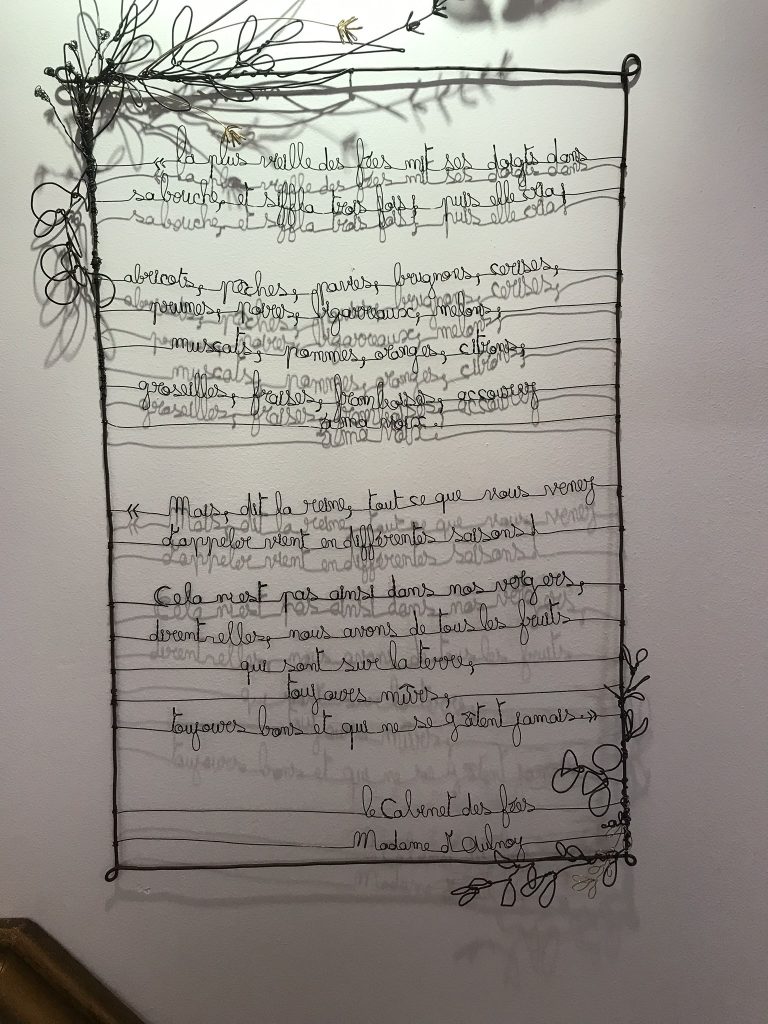 « la plus vieille des fées mit ses doigts dans
sa bouche, et siffla trois fois, puis elle cria :
abricots, pêches, pavies, brugnons, cerises,
prunes, poires, bigarreaux, melons,
muscats, pommes, oranges, citrons,
groseilles, fraises, framboises, accourez
à ma voix.
« Mais, dit la reine, tout ce que vous venez
d'appeler vient en différentes saisons !
Cela n'est pas ainsi dans nos vergers,
dirent-elles, nous avons de tous les fruits
qui sont sur la terre,
toujours mûrs,
toujours bons et qui ne se gâtent jamais. »
le Cabinet des fées
Madame d'Aulnoy